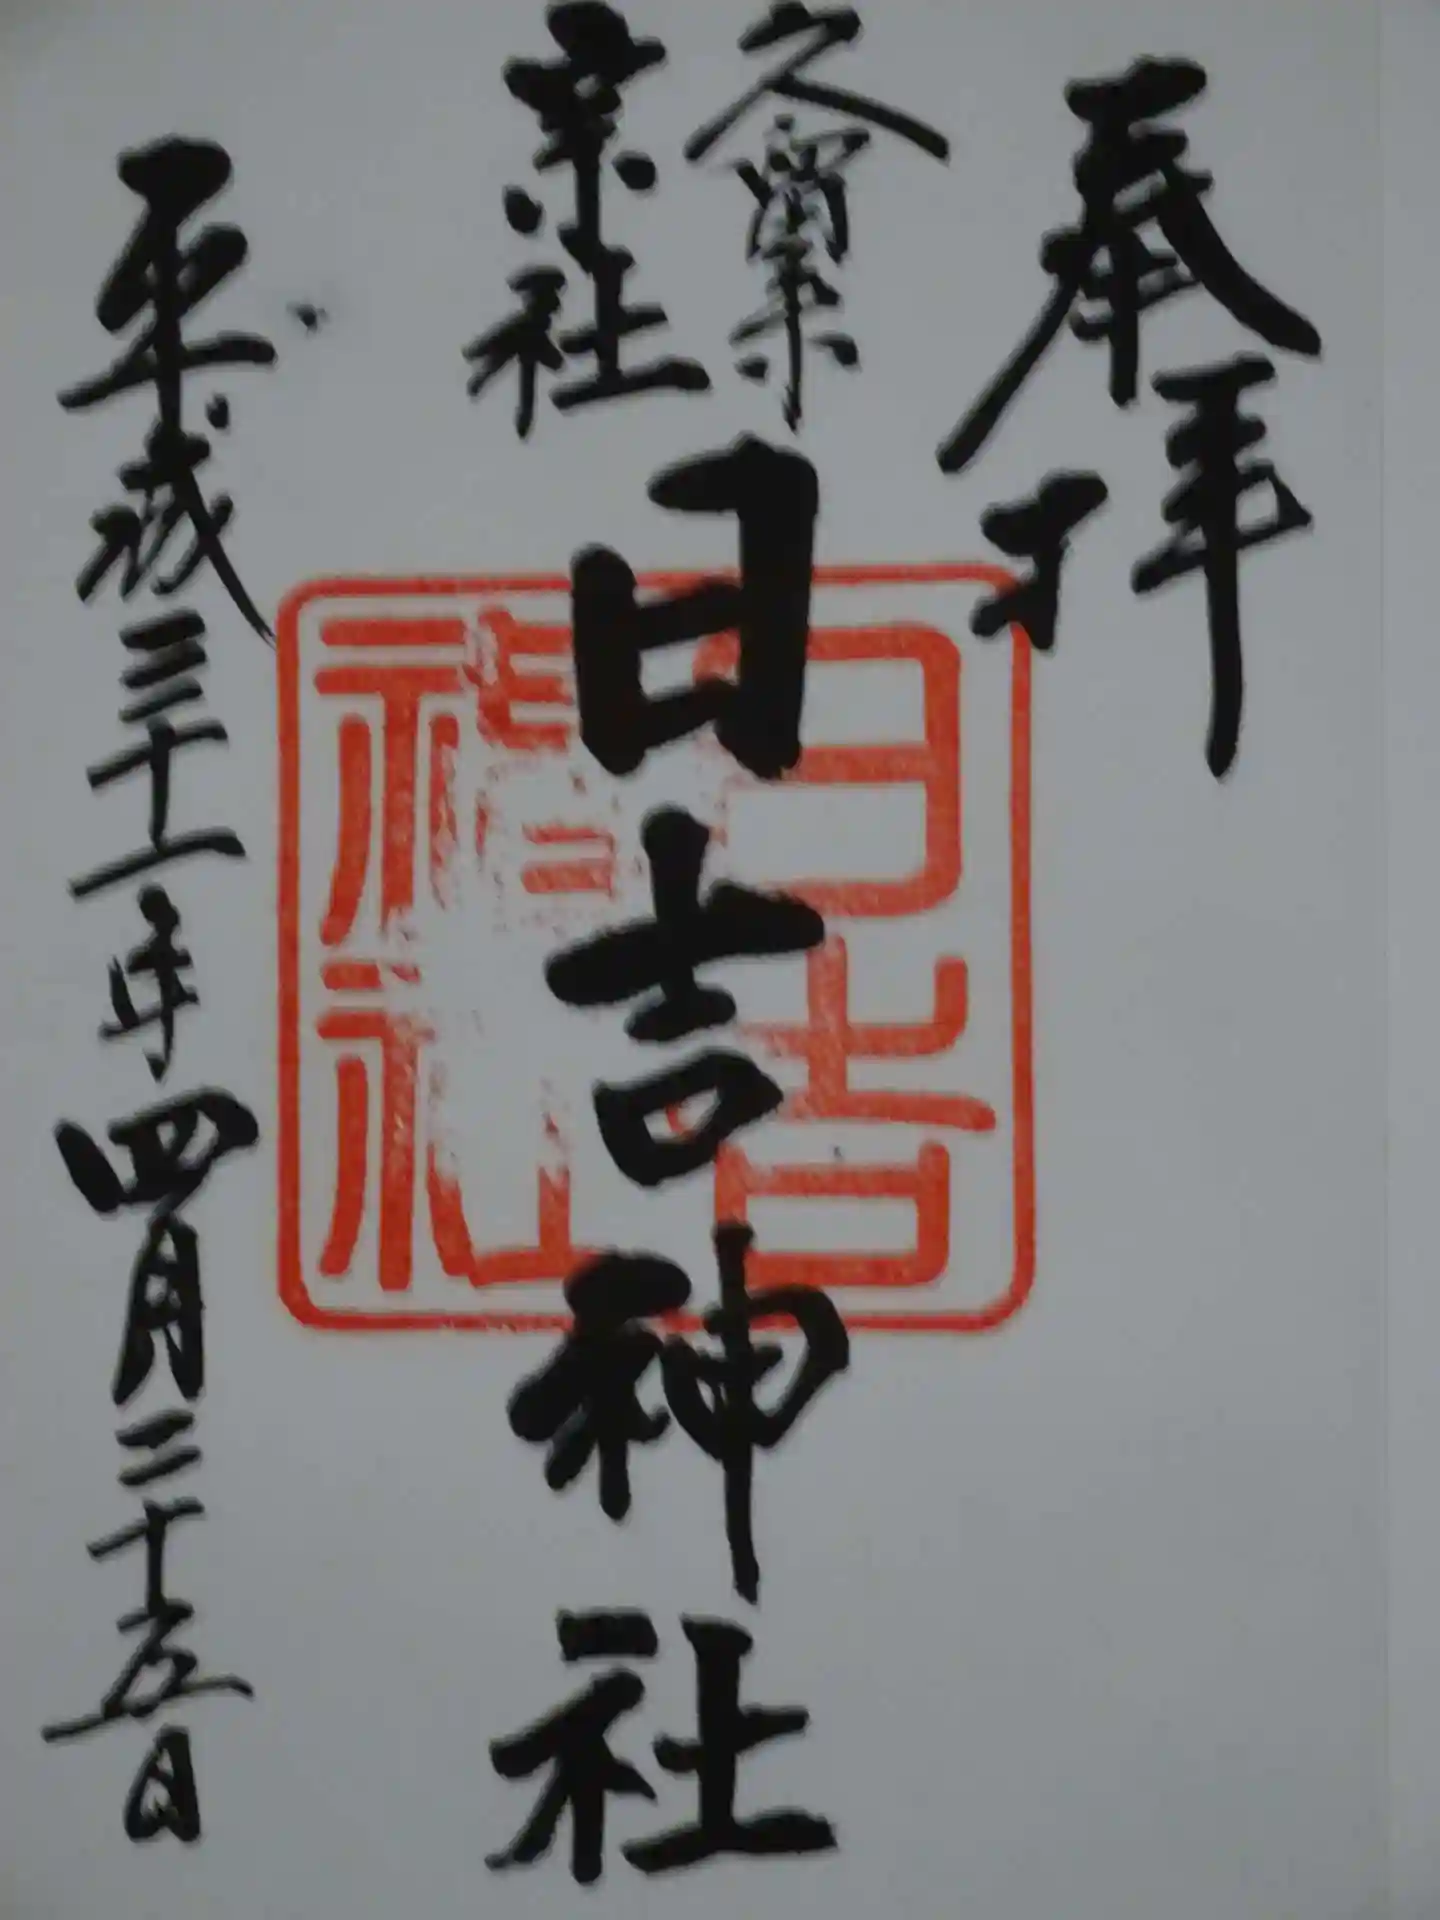 奉拝
久留米
宗社
日吉神社
日吉
神社
平成三十一年四月二十五日